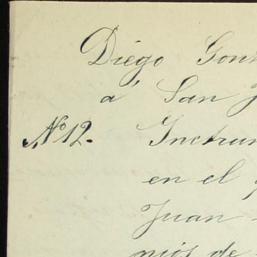 Diego Gon
á San J
No 12. Instrum
en el
Juan
nios de